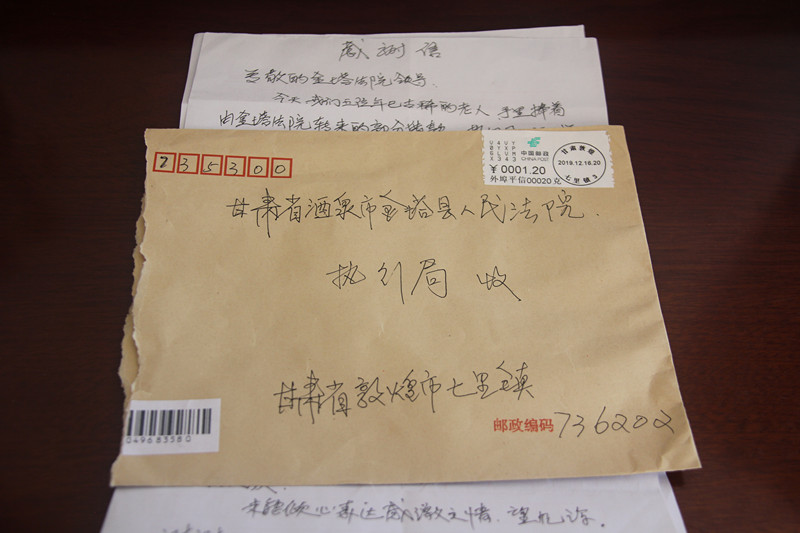 感谢信
尊敬的金塔法院领导:
今天我们五位年已古稀的老人手里捧着
由金塔法院转来的部分赔款
735300
中国邮政
CHINA POST
¥0001.20
外埠平信00020克
甘肃敦煌
2018.12.16.20
七里镇3
甘肃省酒泉市金塔县人民法院
执行局 收
甘肃省敦煌市七里镇
邮政编码 736202
049683580
未能倾心表达感激之情,望允谅。